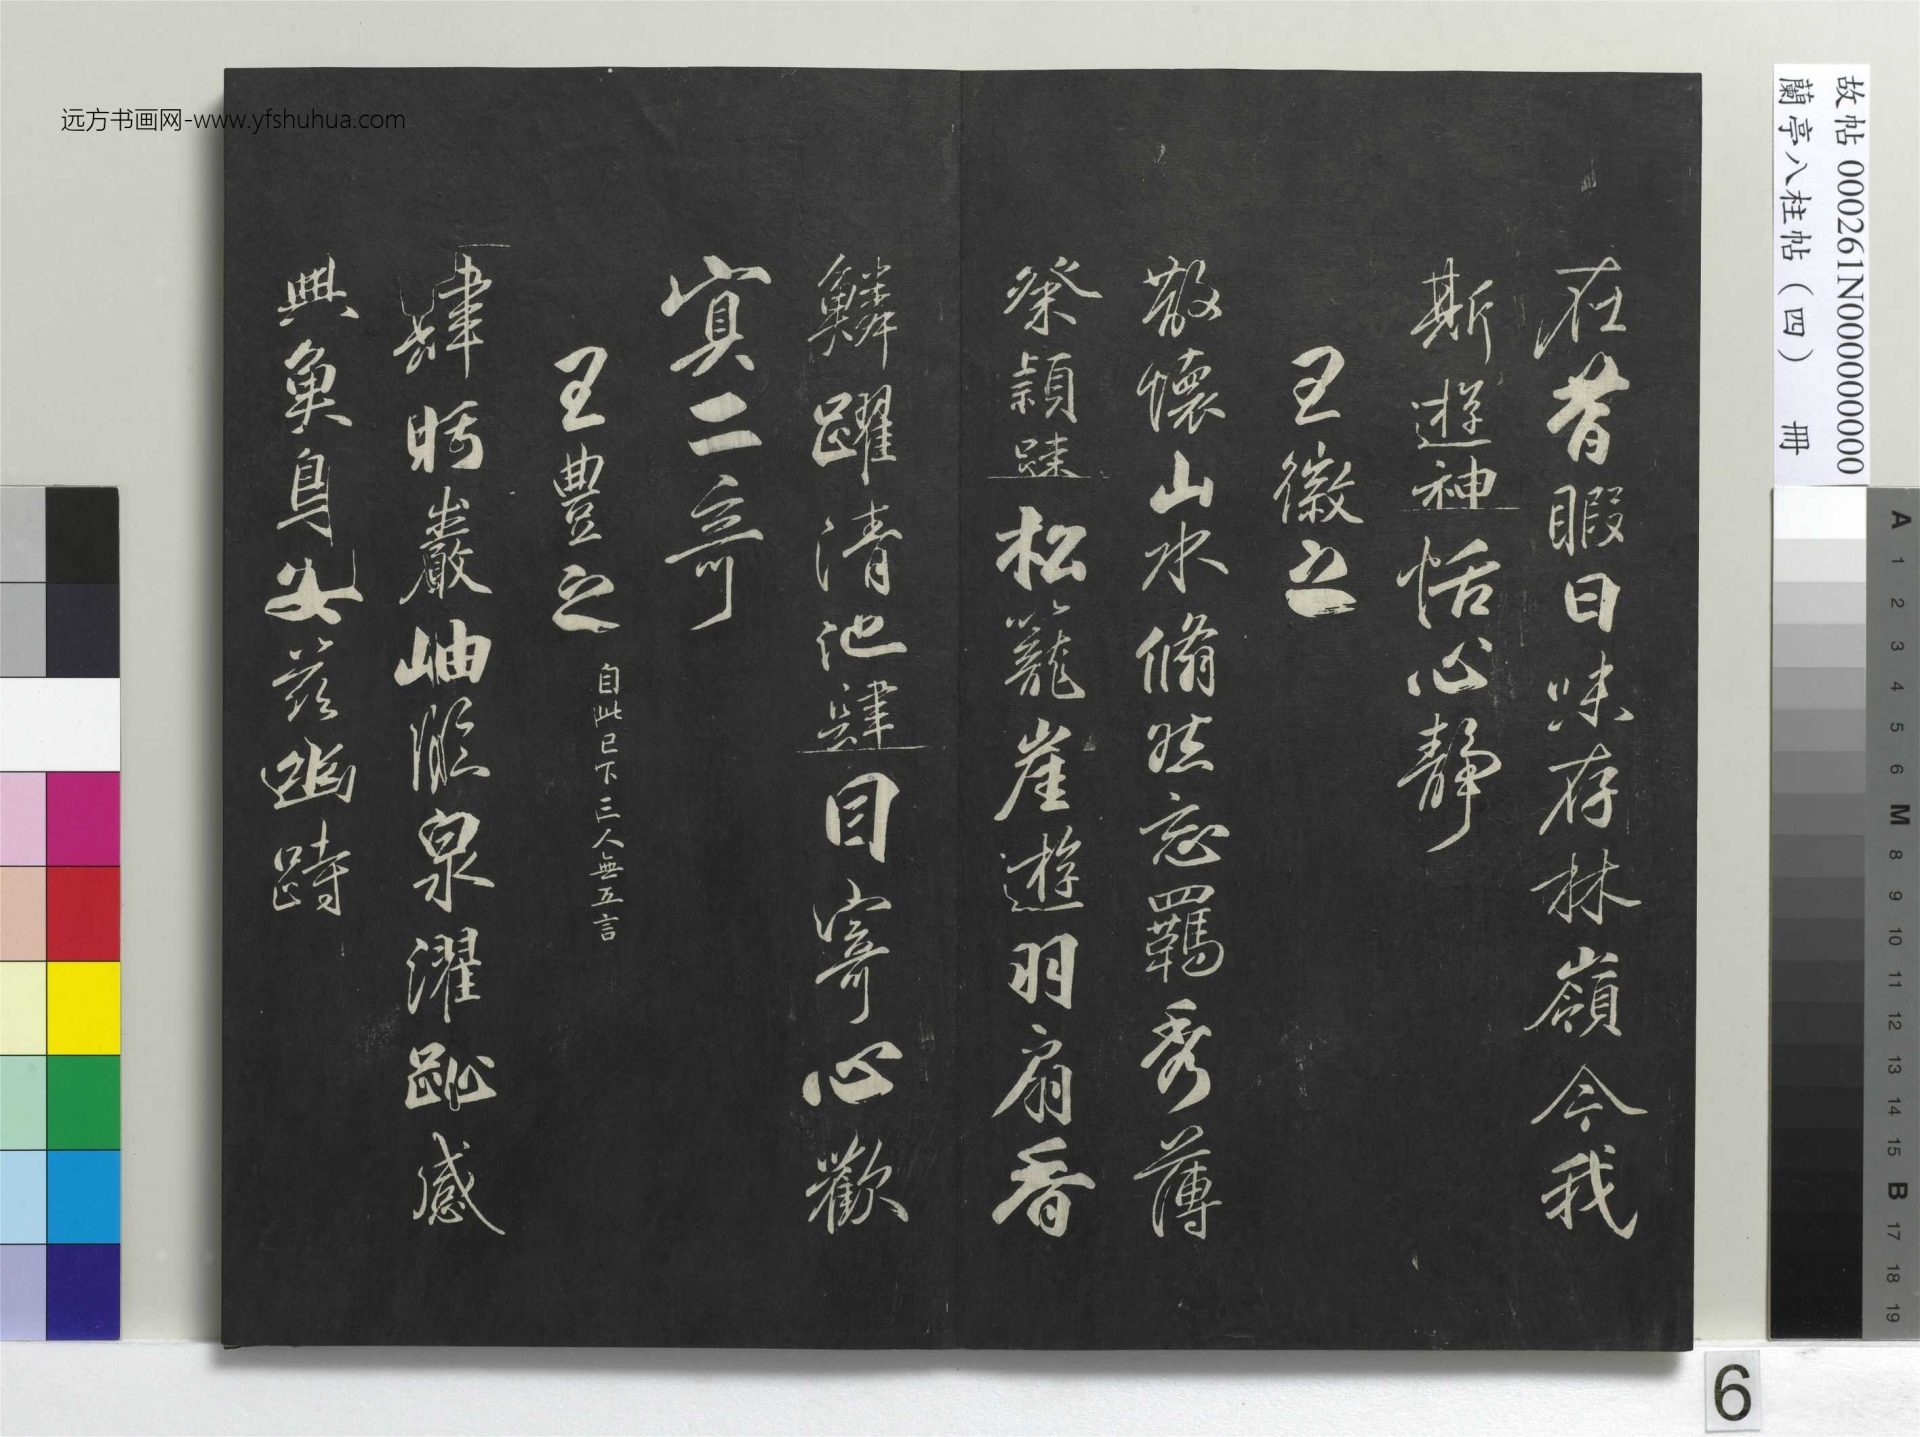 远方书画网-www.yfshuhua.com
故帖 000261N000000000
蘭亭八柱帖（四） 冊
在昔暇日味存林嶺今我
斯遊神恬心靜
王徽之
散懷山水脩然忘羈秀薄
粲穎踈松籠崖遊羽扇香
鱗躍清池肆目寄心歡
寘二奇
王豊之 自此已下三人無五言
肆眄巖岫臨泉濯趾感
興魚鳥安茲幽跱
A 1 2 3 4 5 6 M 8 9 10 11 12 13 14 15 B 17 18 19
6